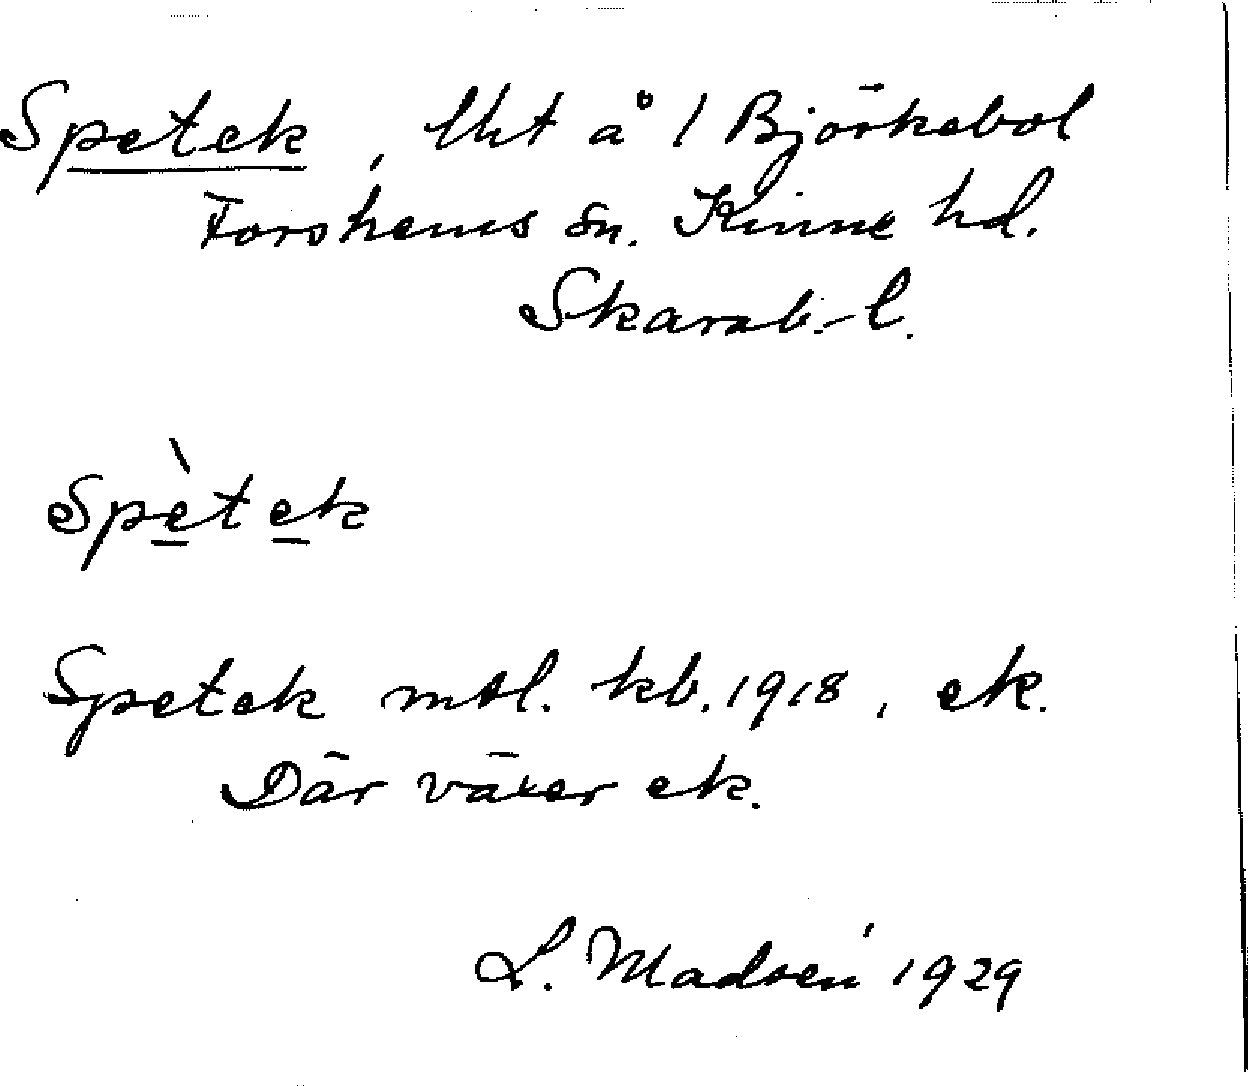 Spetek, lht å 1 Björkebol
Forshems sn. Kinne hd.
Skarab. l.
Spètek
Spetek mtl. kb. 1918, ek.
Där växer ek.
L. Madsén 1929